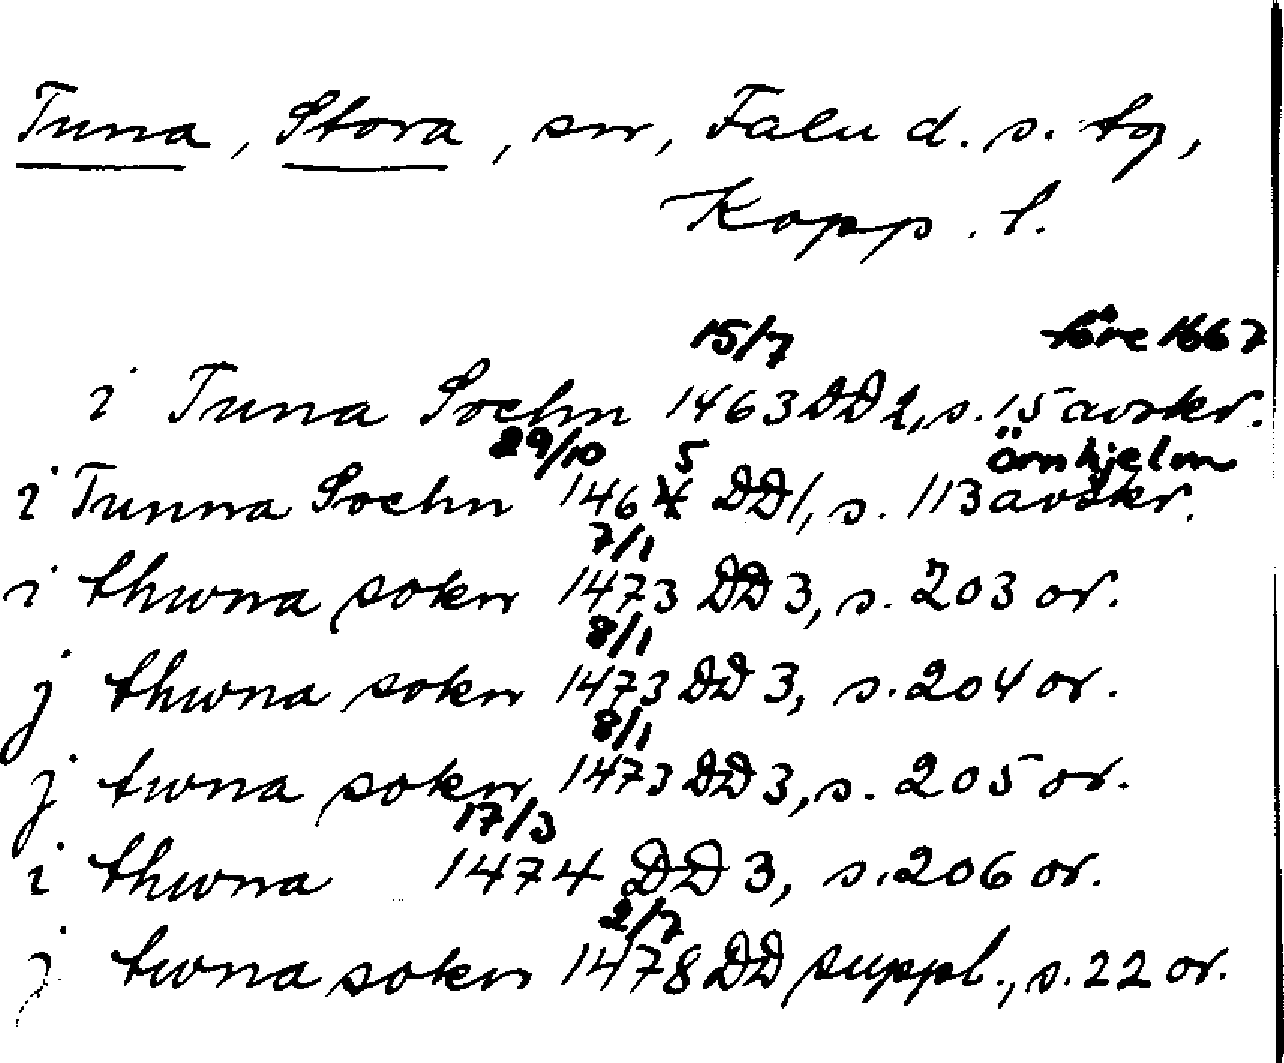 Tuna, Stora, sn, Falu d. s. tg,
Kopp. l.
15/7 före 1667
i Tuna Sochn 1463 DD 2, s. 15 avskr.
29/10 5 örnhjelm
i Tunna Sochn 1464 DD 1, s. 113 avskr.
7/1
i thwna sokn 1473 DD 3, s. 203 or.
8/1
j thwna sokn 1473 DD 3, s. 204 or.
8/1
j twna sokn 1473 DD 3, s. 205 or.
17/3
i thwna 1474 DD 3, s. 206 or.
2/7
j twna sokn 1478 DD suppl., s. 22 or.